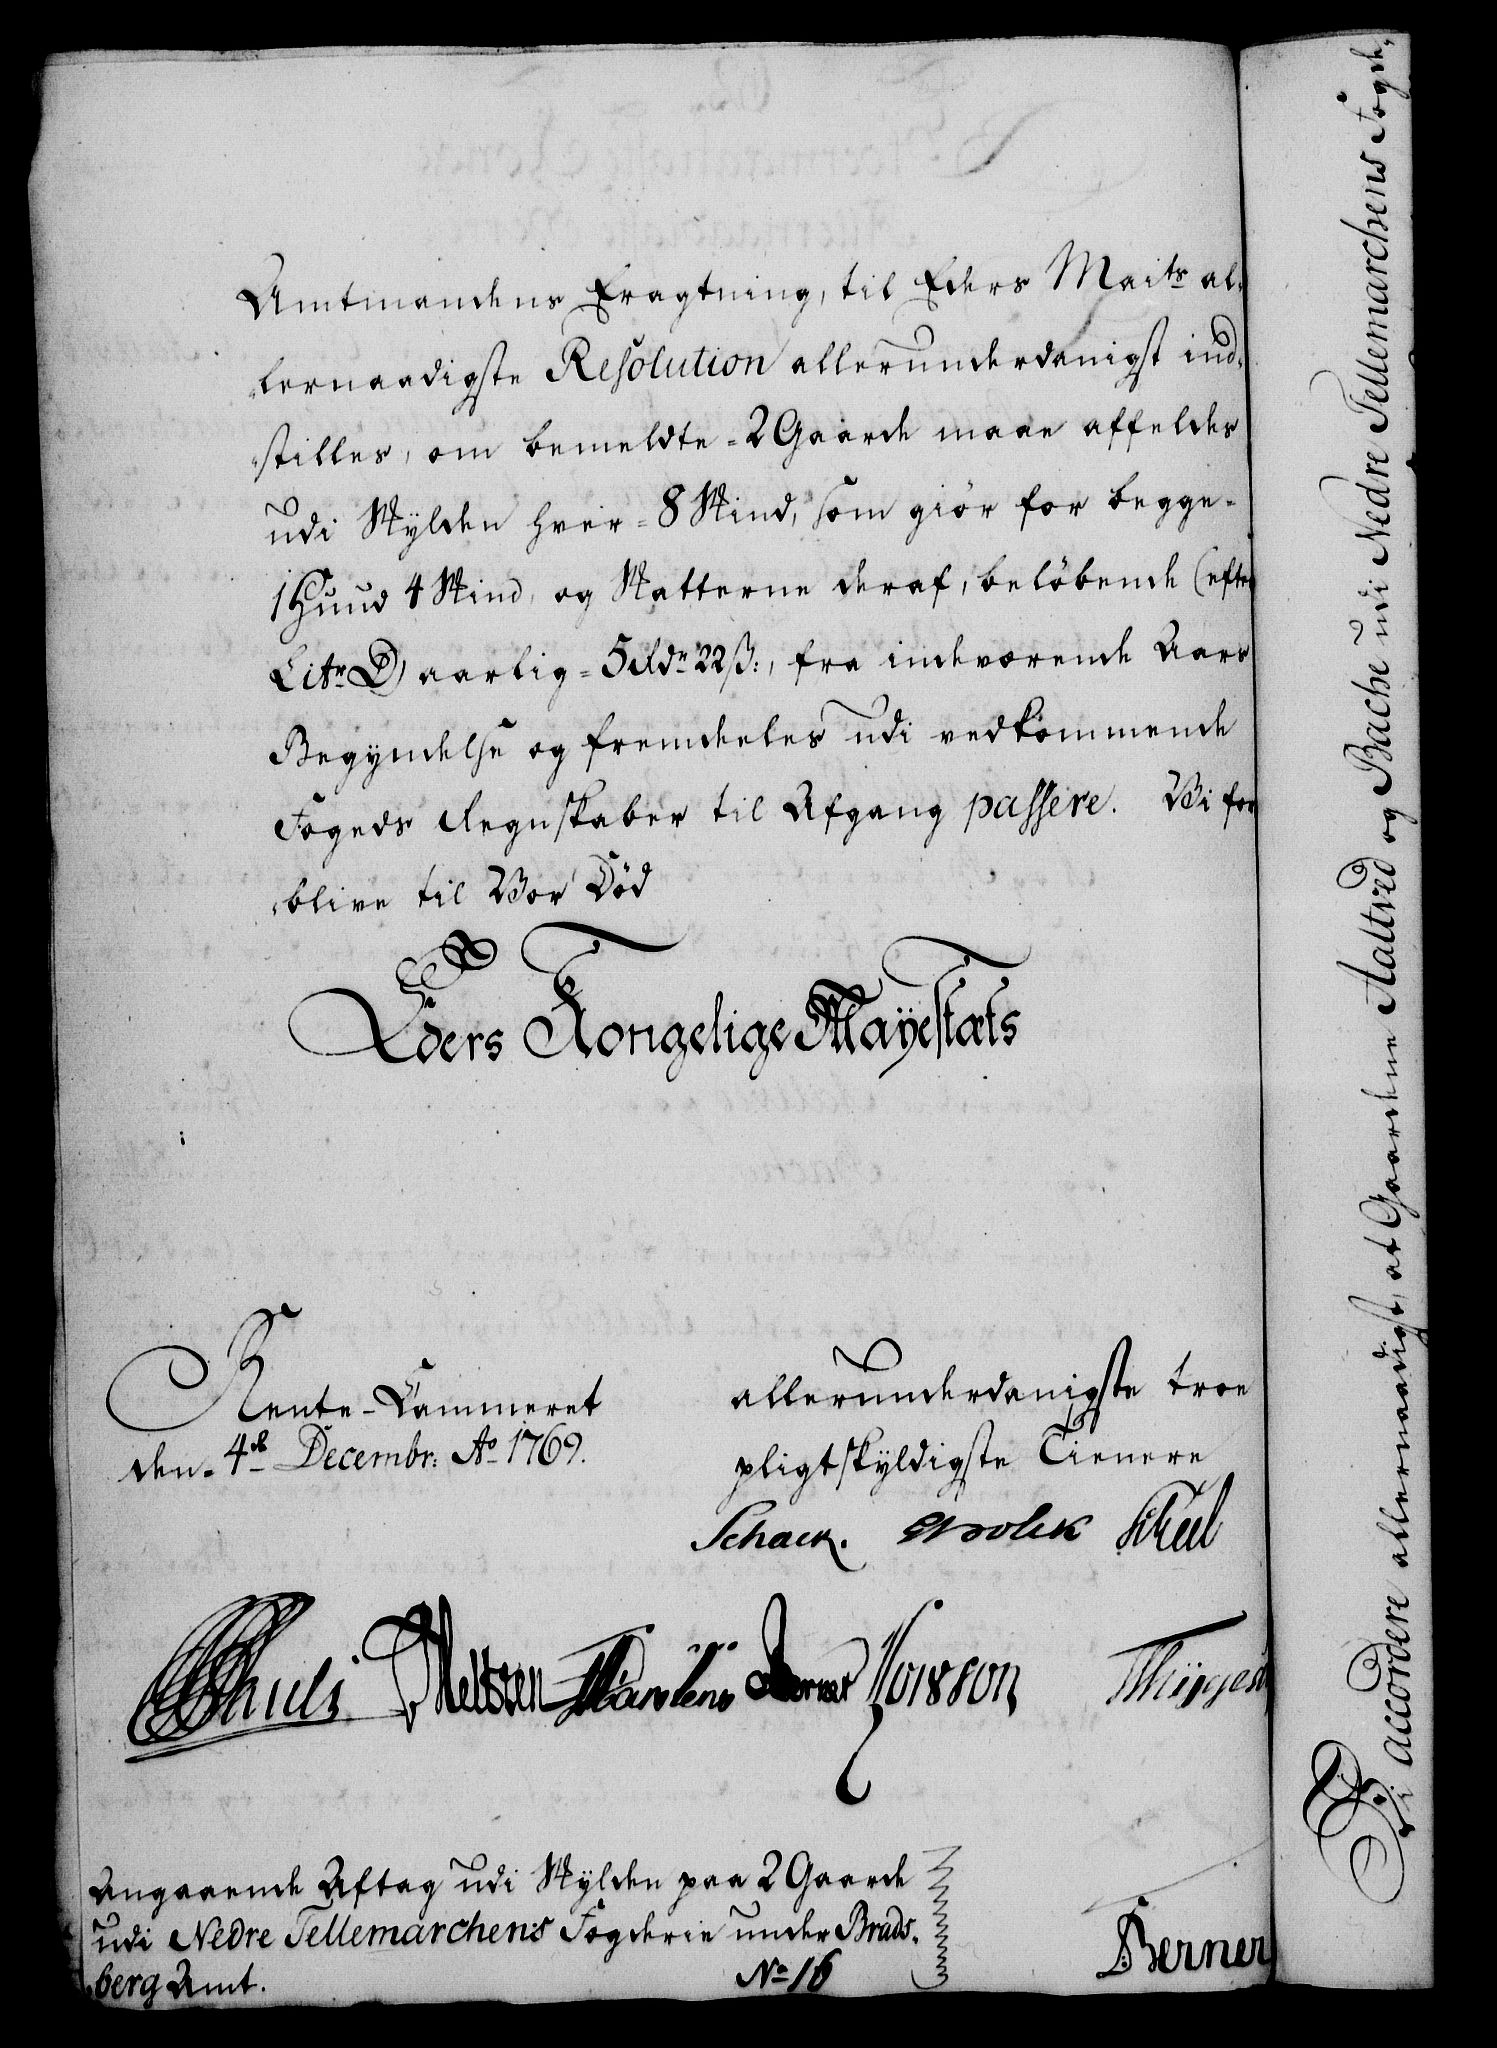 Amtmandens Eragtning, til Eders Maits al-
lernaadigste Resolution allerunderdanigst ind-
stilles, om bemeldte 2 Gaarde maae affeldes
udi Skylden hver 8 Skind, som giør for begge
1 Huud 4 Skind, og Skatterne deraf, beløbende (efter
Litr. D) aarlig 5 Rdr 22 ß:, fra indeværende Aars
Begyndelse og fremdeeles udi vedkommende
Fogeds Regnskaber til Afgang passere. Vi for
blive til Vor Död
Eders Kongelige Mayestæts
Rente-Cammeret
den 4de Decembr: Ao 1769.
allerunderdanigste troe
pligtskyldigste Tienere
Schack.
Berner
Angaaende Aftag udi Skylden paa 2 Gaarde
udi Nedre Tellemarchens Fogderie under Brads-
berg Amt.
No 16
Berner
Vi accordere allernaadigst, at Gaardene Aaltved og Bache udi Nedre Tellemarchens Fogde-